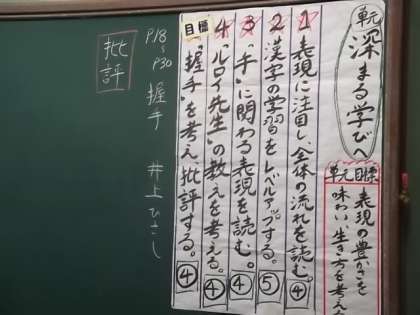 単元
深まる学びへ
単元目標
表現の豊かさを
味わい、生き方を考え
1 表現に注目し、全体の流れを読む。④
2 漢字の学習をレベルアップする。⑤
3 「手」に関わる表現を読む。④
4 「ルロイ先生」の教えを考える。④
目標
「握手」を考え、批評する。④
P18〜P30 握手 井上ひさし
批評